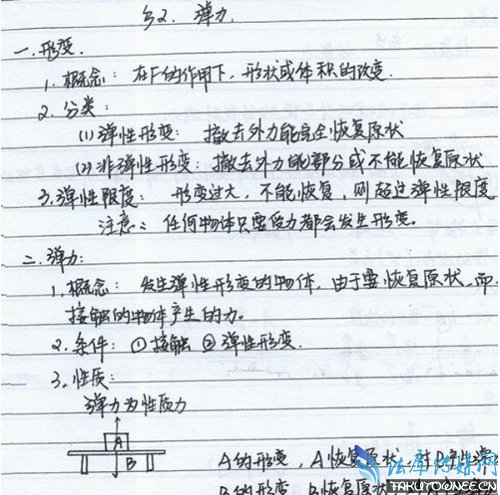 §2. 弹力.
一. 形变.
1. 概念: 在F的作用下, 形状或体积的改变.
2. 分类:
(1) 弹性形变: 撤去外力能完全恢复原状
(2) 非弹性形变: 撤去外力能部分或不能恢复原状
3. 弹性限度: 形变过大, 不能恢复, 则超过弹性限度
注意: 任何物体只要受力都会发生形变。
二. 弹力:
1. 概念: 发生弹性形变的物体, 由于要恢复原状, 而
接触的物体产生的力。
2. 条件: ① 接触 ② 弹性形变.
3. 性质:
弹力为性质力
A
B
A的形变, A恢复原状, 对B产生弹
B的形变 B恢复原状
法库传媒网
TAKUTOONEE.CN